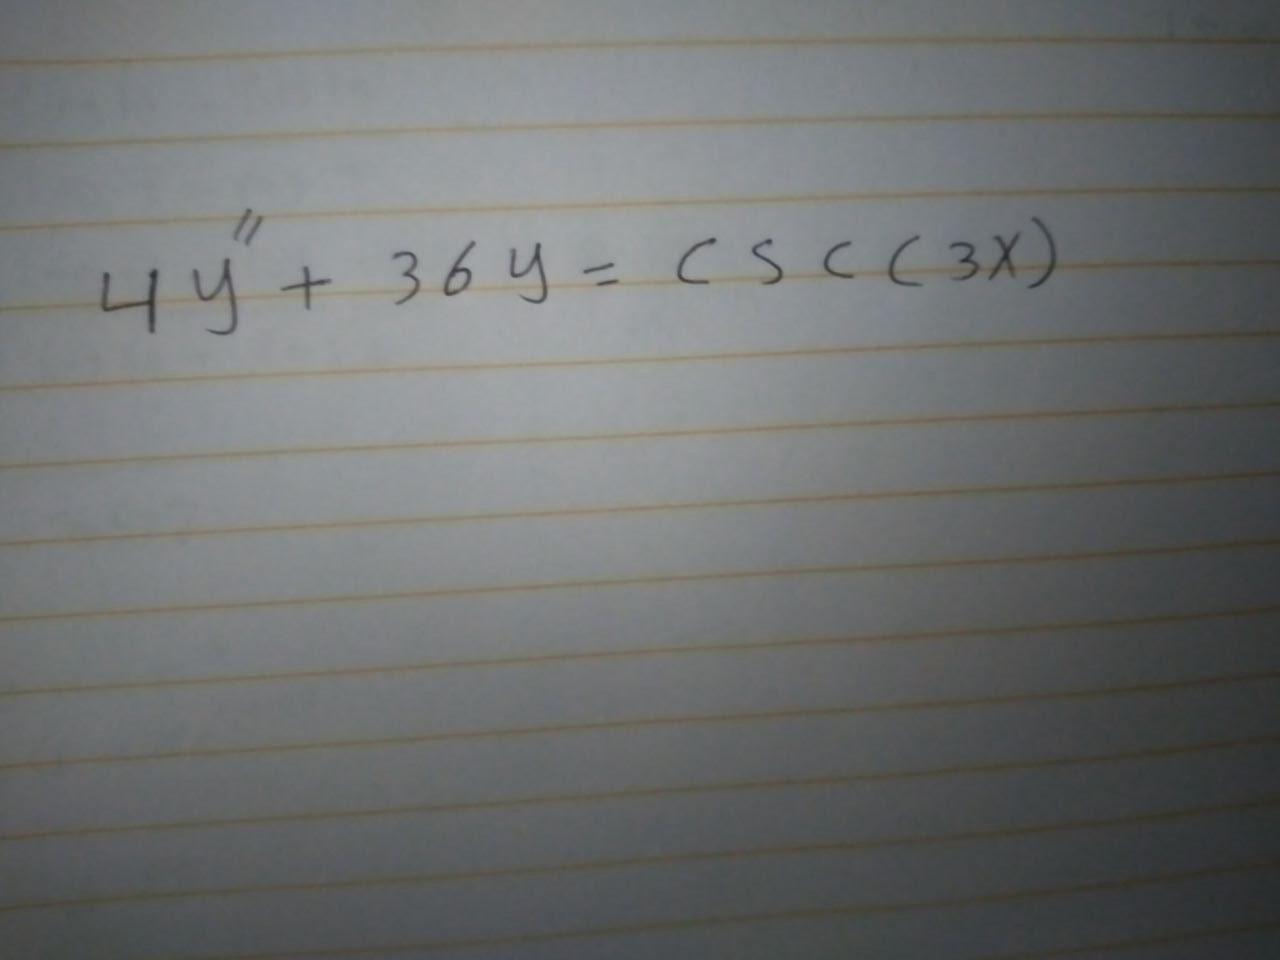 4y'' + 36y = csc(3x)